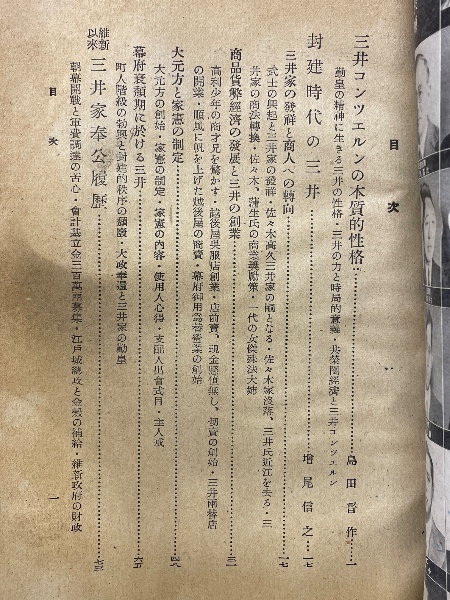 目次
三井コンツエルンの本質的性格……島田晋作…一
勤皇の精神に生きる三井の性格・三井の力と時局的意義・共榮圏經濟と三井コンツエルン
封建時代の三井……增尾信之…一七
三井家の發祥と商人への轉向……一七
武士の興起と三井家の發祥・佐々木高久三井家の嗣となる・佐々木家沒落、三井氏近江を去る・三
井家の商法轉換・佐々木、蒲生氏の商業奬勵策・一代の女傑殊法大姉
商品貨幣經濟の發展と三井の創業……三一
高利少年の商才兄を驚かす・越後屋呉服店創業・店前賣、現金懸値無し、切賣の創始・三井兩替店
の開業・順風に帆を上げた越後屋の商賣・幕府御用爲替營業の創始
大元方と家憲の制定……四九
大元方の創始・家憲の制定・家憲の內容・使用人心得・支配人出會式目・主人戒
幕府衰頽期に於ける三井……六五
町人階級の勃興と封建的秩序の頽廢・大政奉還と三井家の勤皇
維新以來 三井家奉公履歷……七三
朝幕開戰と軍費調達の苦心・會計基立金三百萬兩募集・江戶城總攻と金穀の補給・維新政府の財政
目次
一